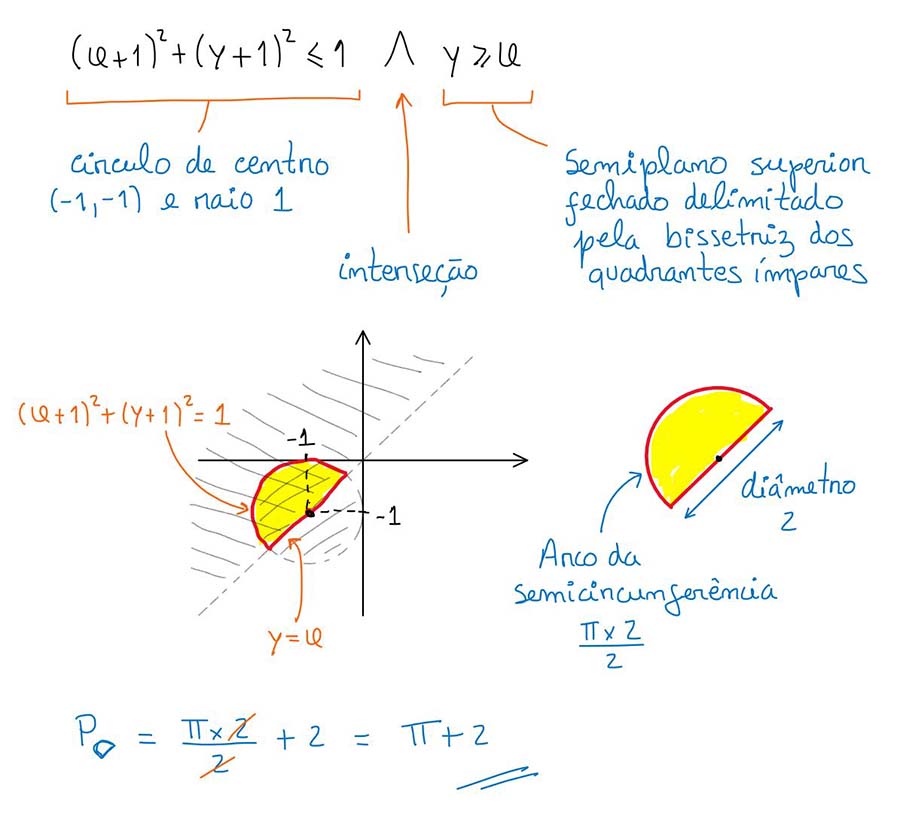 (x+1)²+(y+1)² ⩽ 1 ∧ y ⩾ x
círculo de centro
(-1,-1) e raio 1
interseção
Semiplano superior
fechado delimitado
pela bissetriz dos
quadrantes ímpares
(x+1)²+(y+1)²=1
-1
-1
y=x
diâmetro
2
Arco da
semicircunferência
π×2
2
P = π×2/2 + 2 = π+2